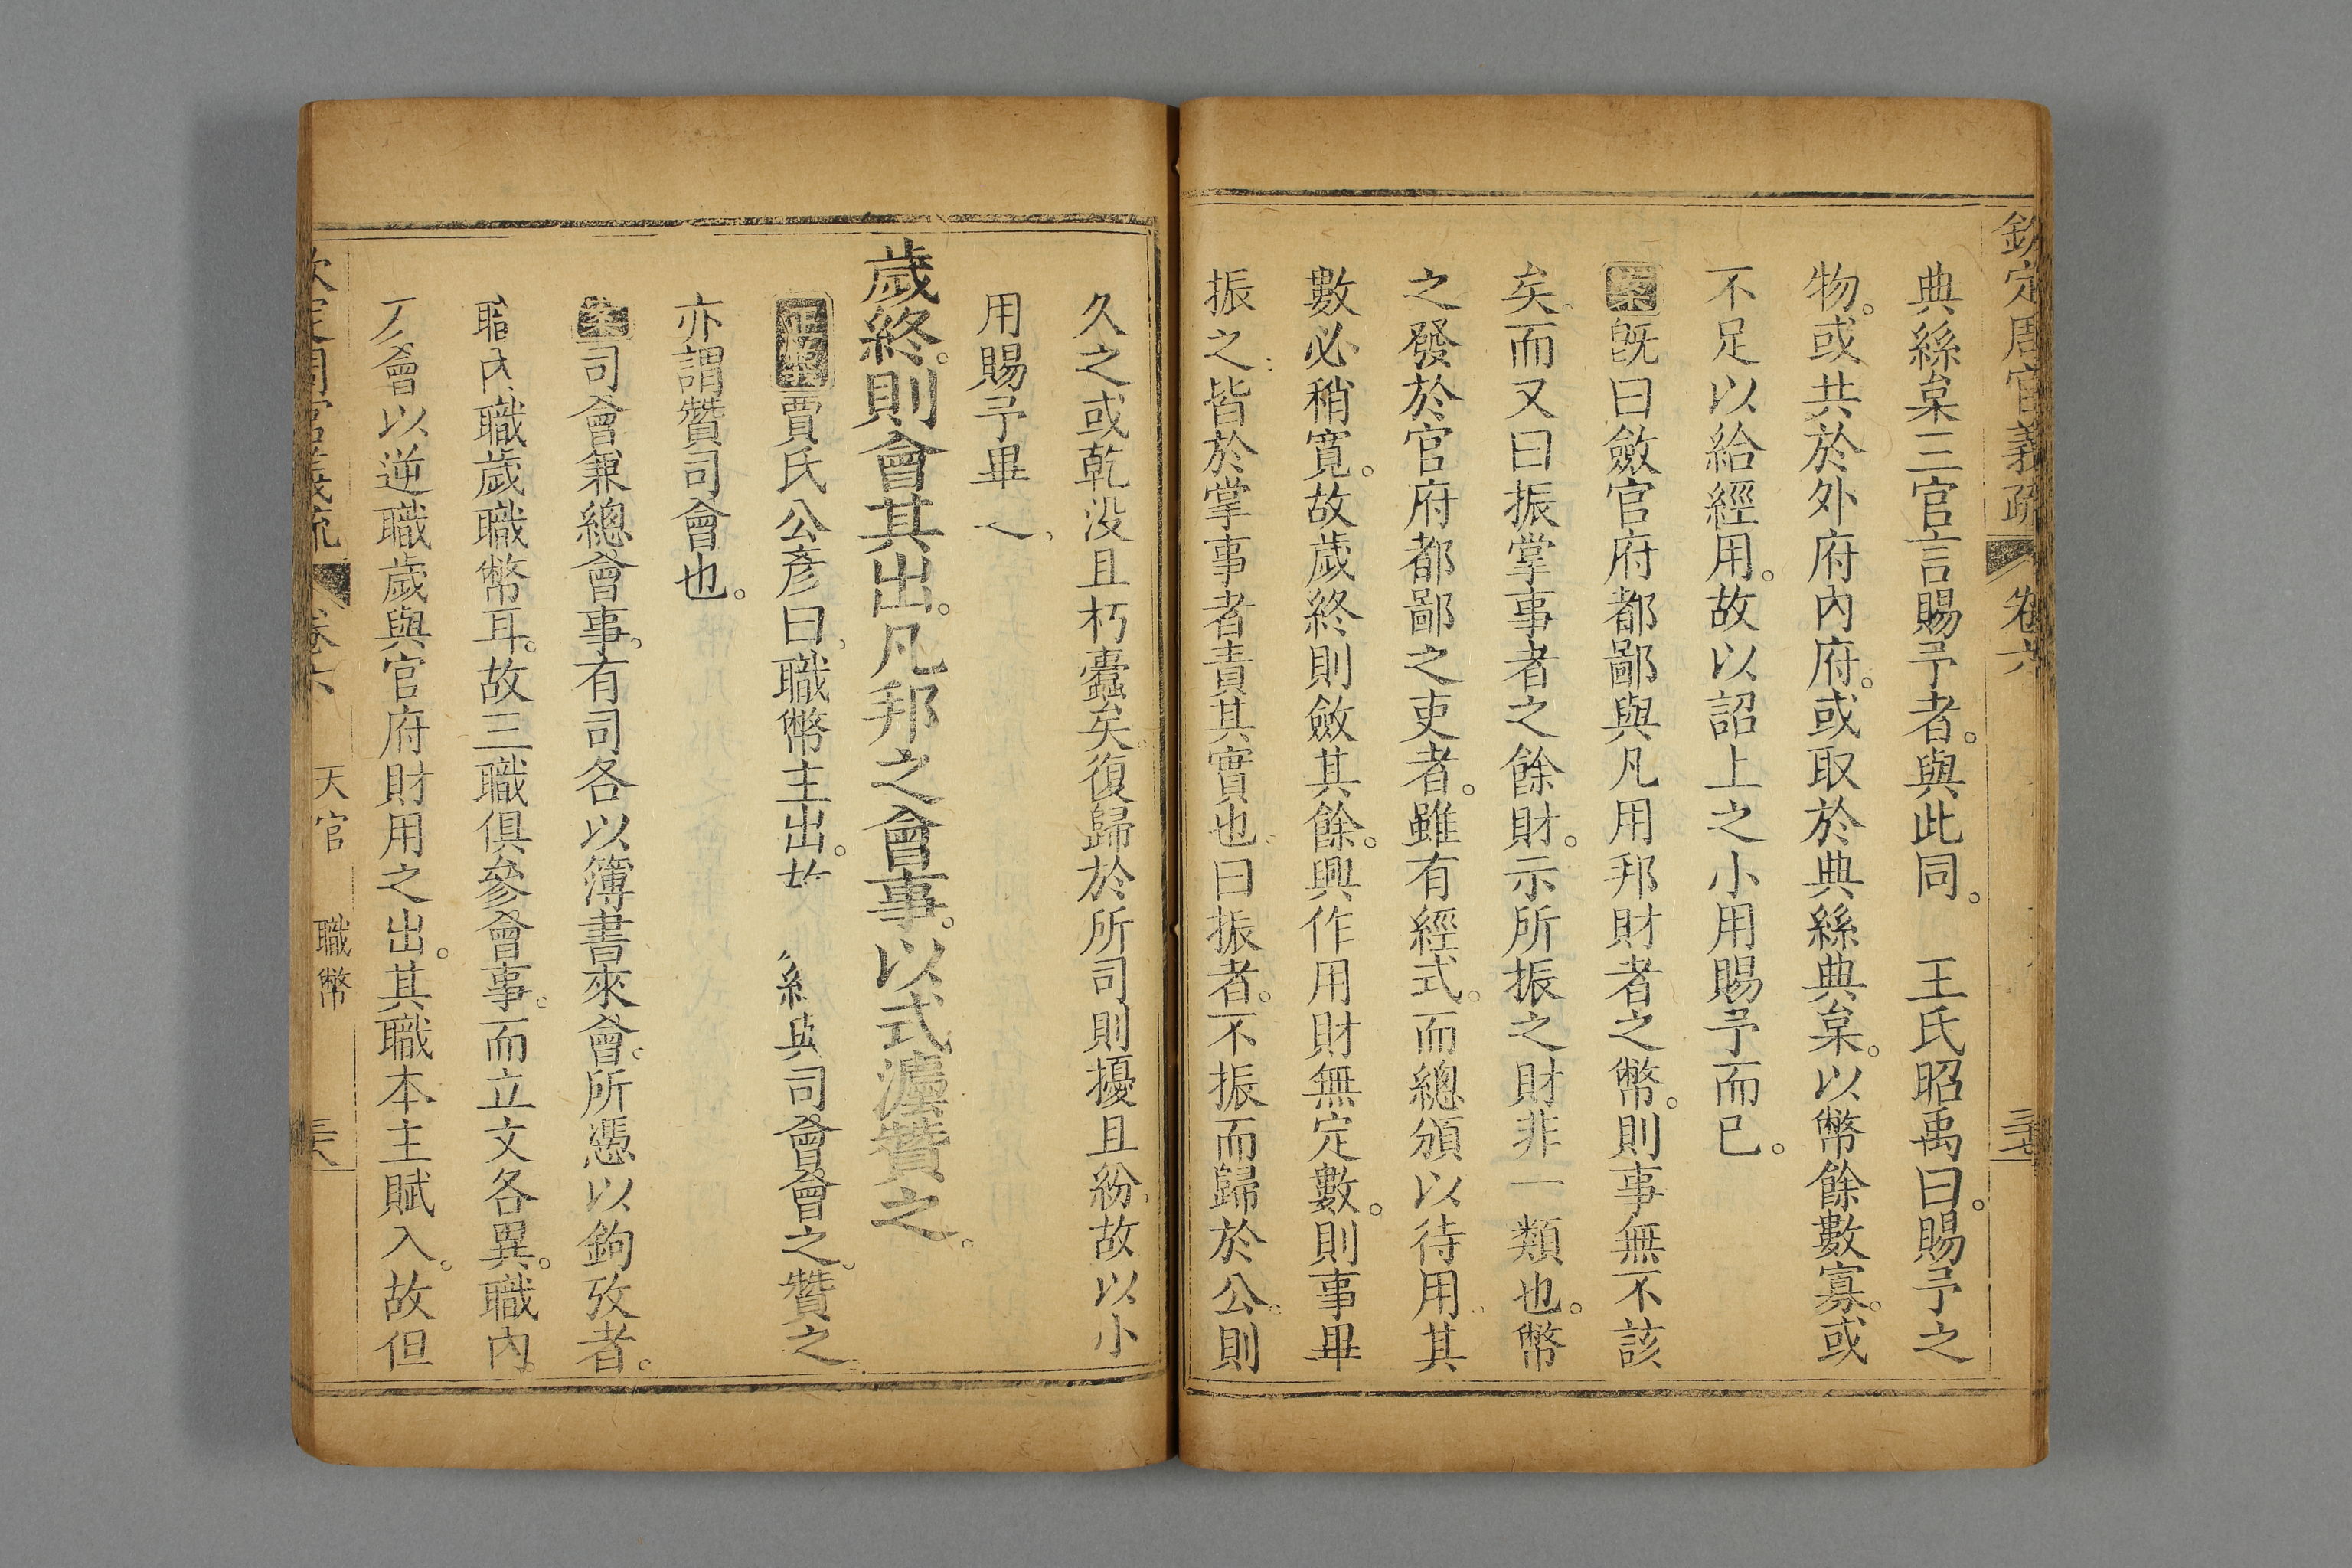 欽定周官義疏 卷六 三十七
典絲枲三官言賜予者。與此同。 王氏昭禹曰。賜予之
物。或共於外府內府。或取於典絲典枲。以幣餘數寡。或
不足以給經用。故以詔上之小用賜予而已。
案旣曰斂官府都鄙與凡用邦財者之幣。則事無不該
矣。而又曰振掌事者之餘財。示所振之財非一類也。幣
之發於官府都鄙之吏者。雖有經式。而總頒以待用。其
數必稍寬。故歲終則斂其餘。興作用財無定數。則事畢
振之。皆於掌事者責其實也。曰振者。不振而歸於公。則
久之或乾没且朽蠹矣。復歸於所司則擾且紛。故以小
用賜予畢
歲終。則會其出。凡邦之會事。以式灋贊之。
正義賈氏公彥曰。職幣主出。故 與司會會之。贊之
亦謂贊司會也。
案司會兼總會事。有司各以簿書來會。所憑以鉤攷者。
職內。職歲職幣耳。故三職俱參會事。而立文各異。職內。
會以逆職歲與官府財用之出。其職本主賦入。故但
欽定周官義疏 卷六 天官 職幣 三十八